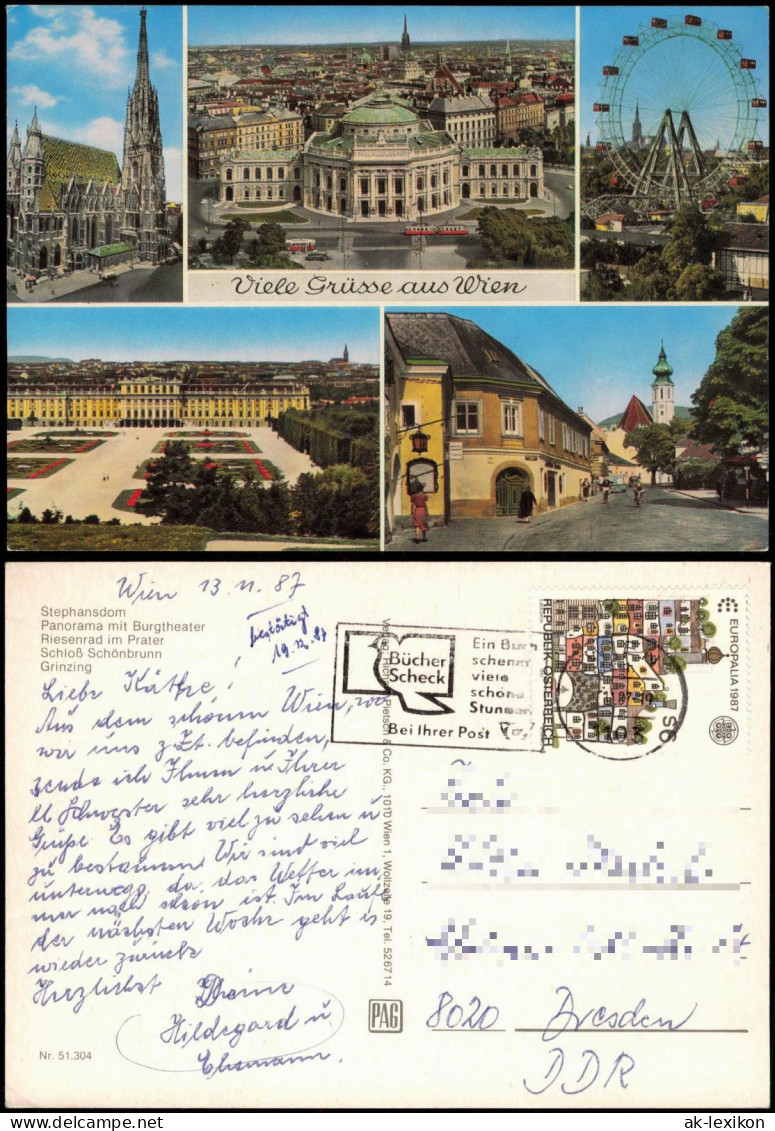 Viele Grüsse aus Wien
Wien 13. 11. 87
Stephansdom
Panorama mit Burgtheater
Riesenrad im Prater
Schloß Schönbrunn
Grinzing
bestätigt
19.12.87
Liebe Käthe!
Aus dem schönen Wien, wo
wir uns z. Zt. befinden,
sende ich Ihnen u. Ihrer
lb Schwester sehr herzliche
Grüße. Es gibt viel zu sehen u
zu bestaunen. Wir sind viel
unterwegs, da das Wetter im
mer noch schön ist. Im Laufe
der nächsten Woche geht es
wieder zurück.
Herzlichst Deine
Hildegard u
Ehemann.
Nr. 51.304
Pietsch & Co. KG., 1010 Wien 1, Wollzeile 19, Tel. 526714
PAG
Bücher
Scheck
Ein Buch
schenkt
viele
schöne
Stunden
Bei Ihrer Post
REPUBLIK ÖSTERREICH
EUROPALIA 1987
S6
8020 Dresden
DDR
ak-lexikon.com